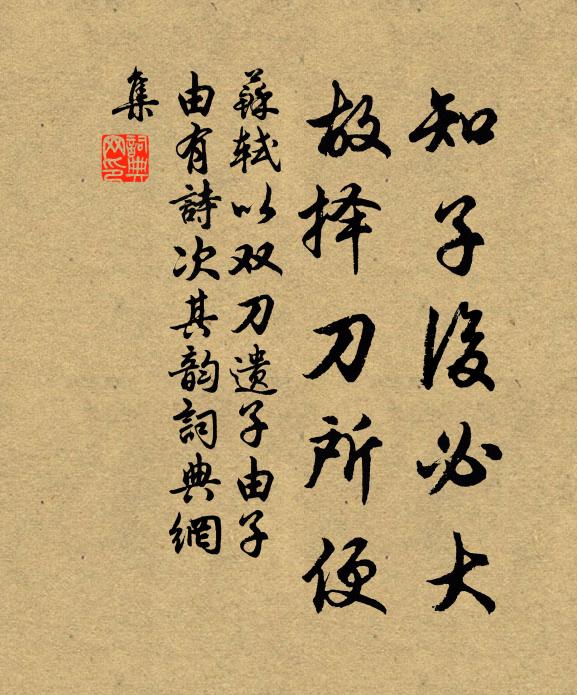 知子後必大
故择刀所便
蘇軾以双刀遺子由子
由有詩次其韵詞典網
集
詞典
网印